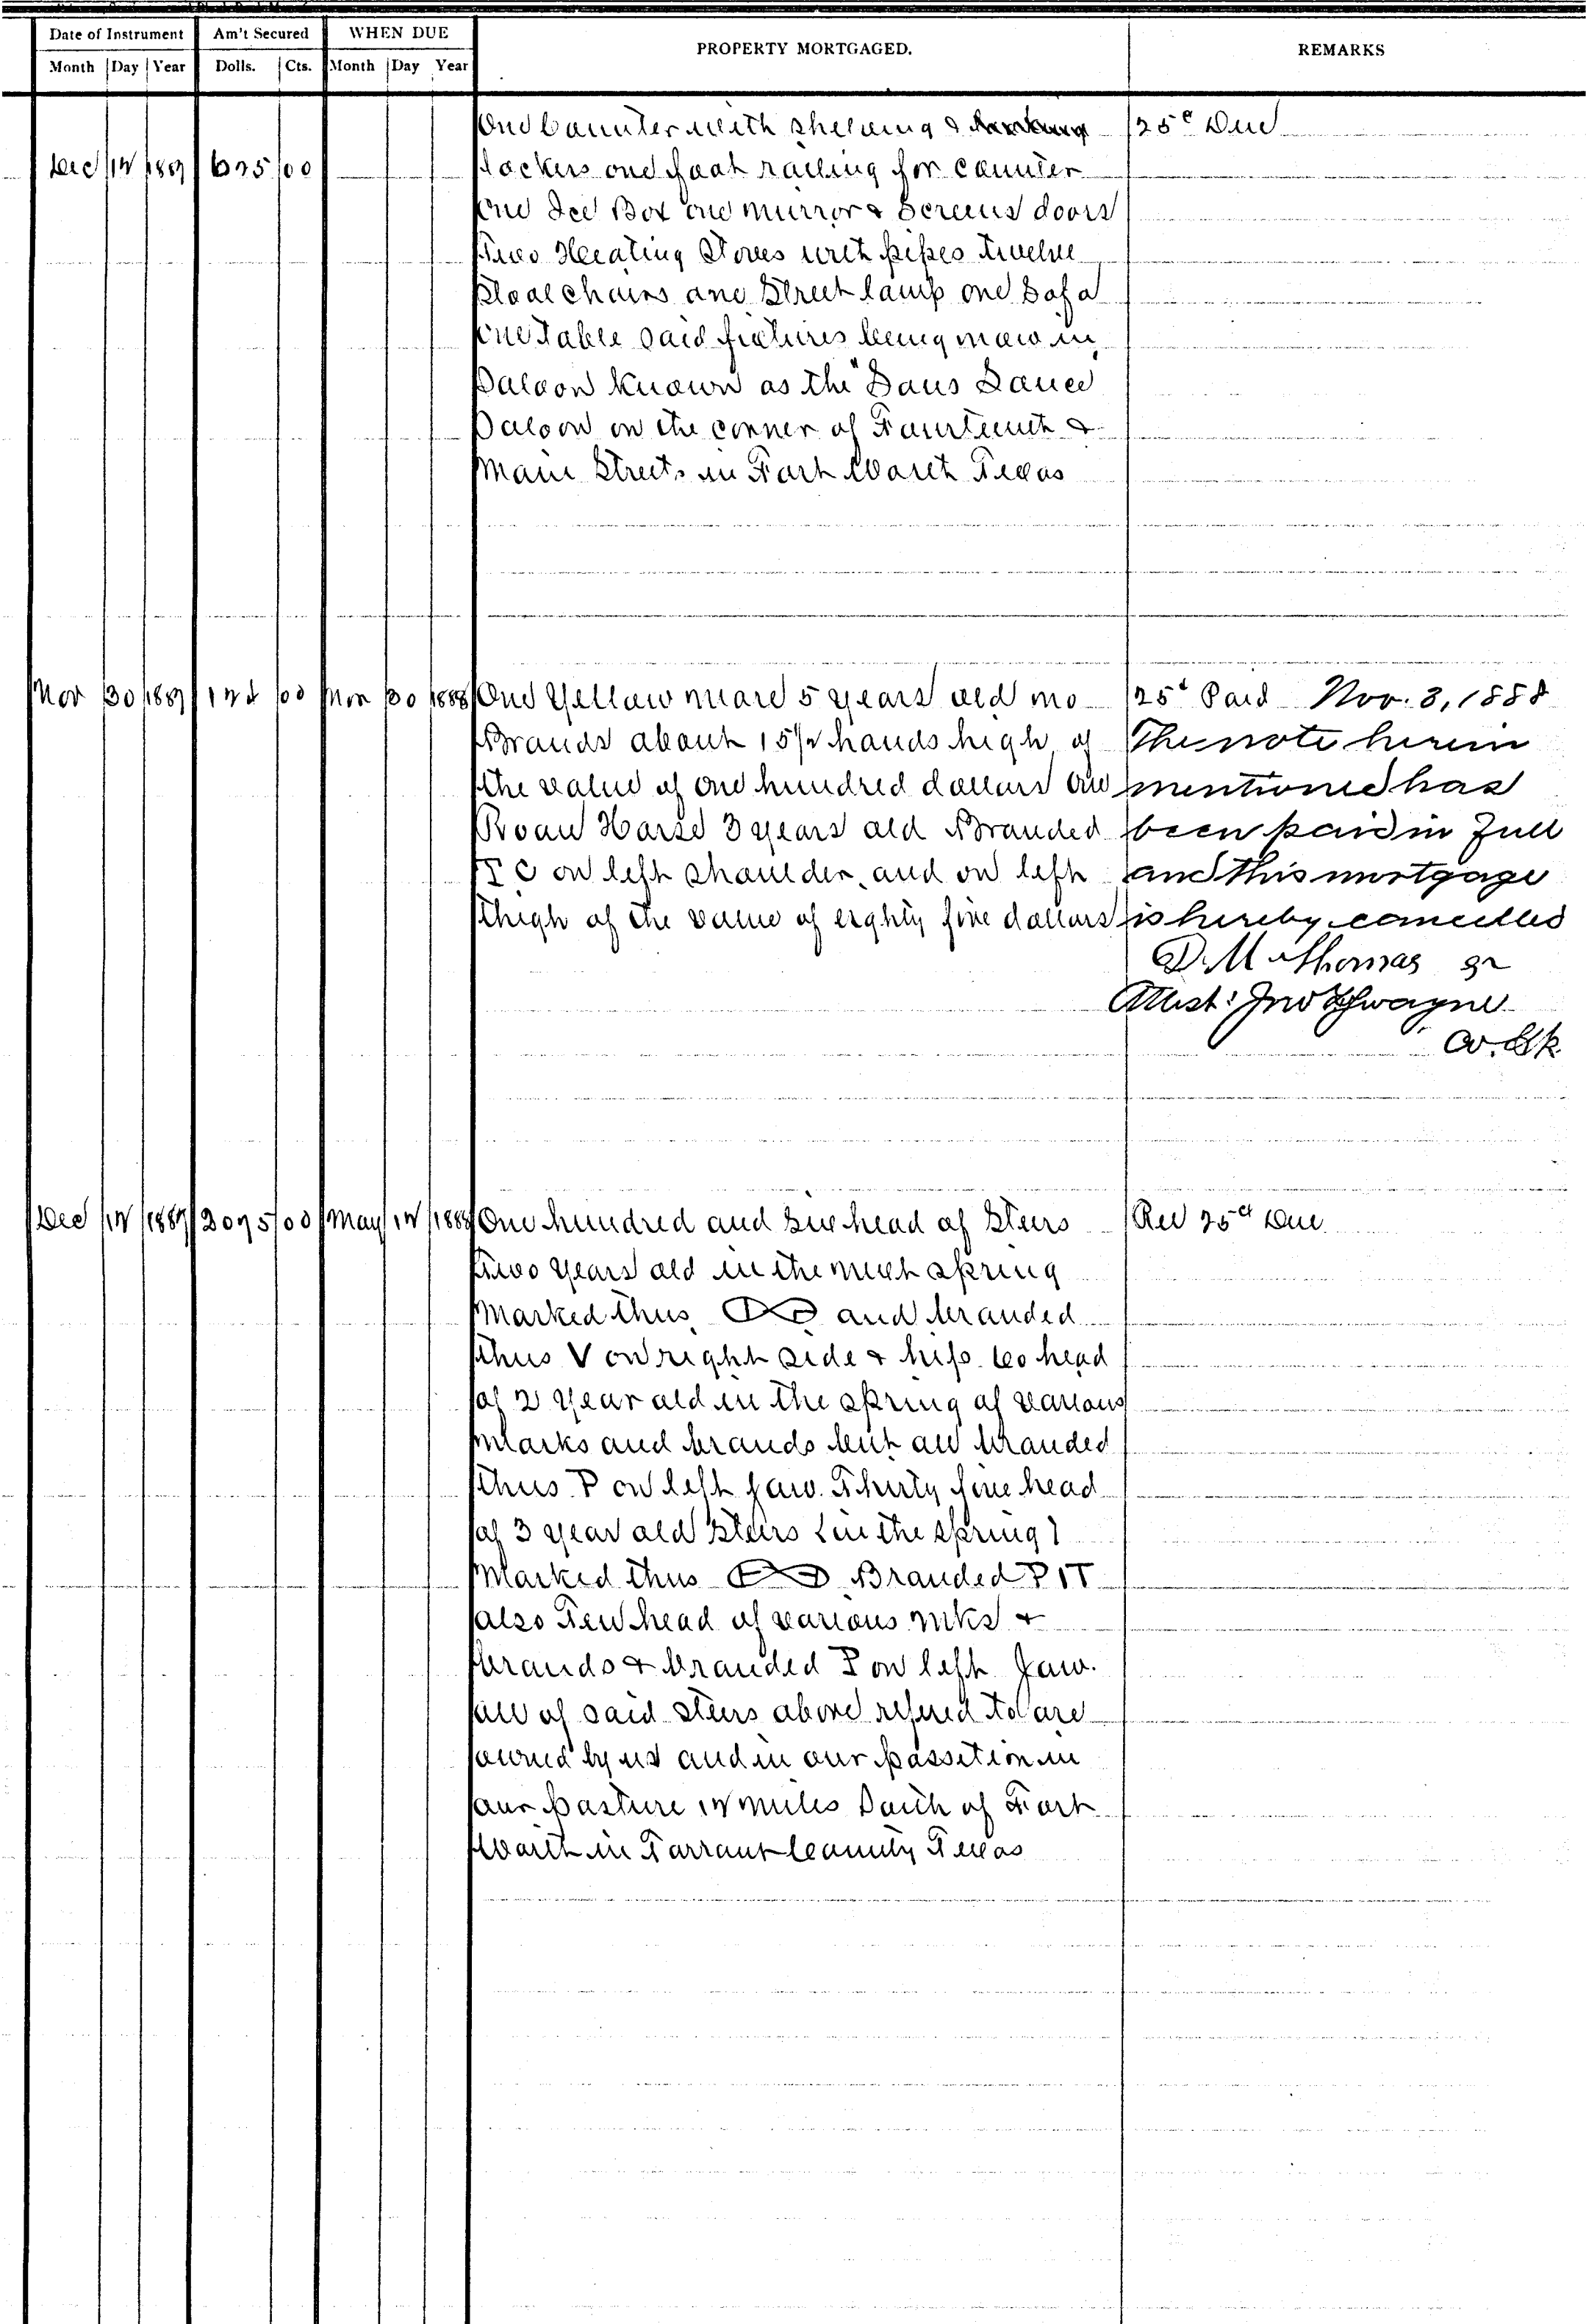 Date of Instrument Am't Secured WHEN DUE PROPERTY MORTGAGED. REMARKS
Month Day Year Dolls. Cts. Month Day Year
One Counter with shelving & 25c Due
Dec 12 1887 625 00 lockers one foot railing for counter
one Ice Box one mirror & Screens doors
Two Heating Stoves with pipes twelve
chairs and Street lamp one Sofa
one Table said fixtures being now in
Saloon known as the Saus
Saloon on the corner of Fourteenth &
Main Streets in Fort Worth Texas
Nov 30 1887 00 Nov 30 1888 One Yellow mare 5 years old no 25c Paid Nov. 3, 1888
Brands about 15½ hands high of The note herein
the value of one hundred dollars One mentioned has
Roan Horse 3 years old Branded been paid in full
on left shoulder, and on left and this mortgage
thigh of the value of eighty five dollars is hereby cancelled
D. M. Thomas
Attest: Jno F Swayne
Co. Clk
Dec 12 1887 2075 00 May 12 1888 One hundred and six head of Steers 25ct Due
Two years old in the next spring
Marked thus and branded
thus V on right side & hip. 60 head
of 2 year old in the spring of various
marks and brands but all branded
thus P on left jaw. Thirty five head
of 3 year old steers (in the spring)
Marked thus Branded P I T
also Ten head of various mks &
brands & branded P on left Jaw.
all of said steers above refered to are
owned by us and in our possetion in
our pasture 12 miles South of Fort
Worth in Tarrant County Texas